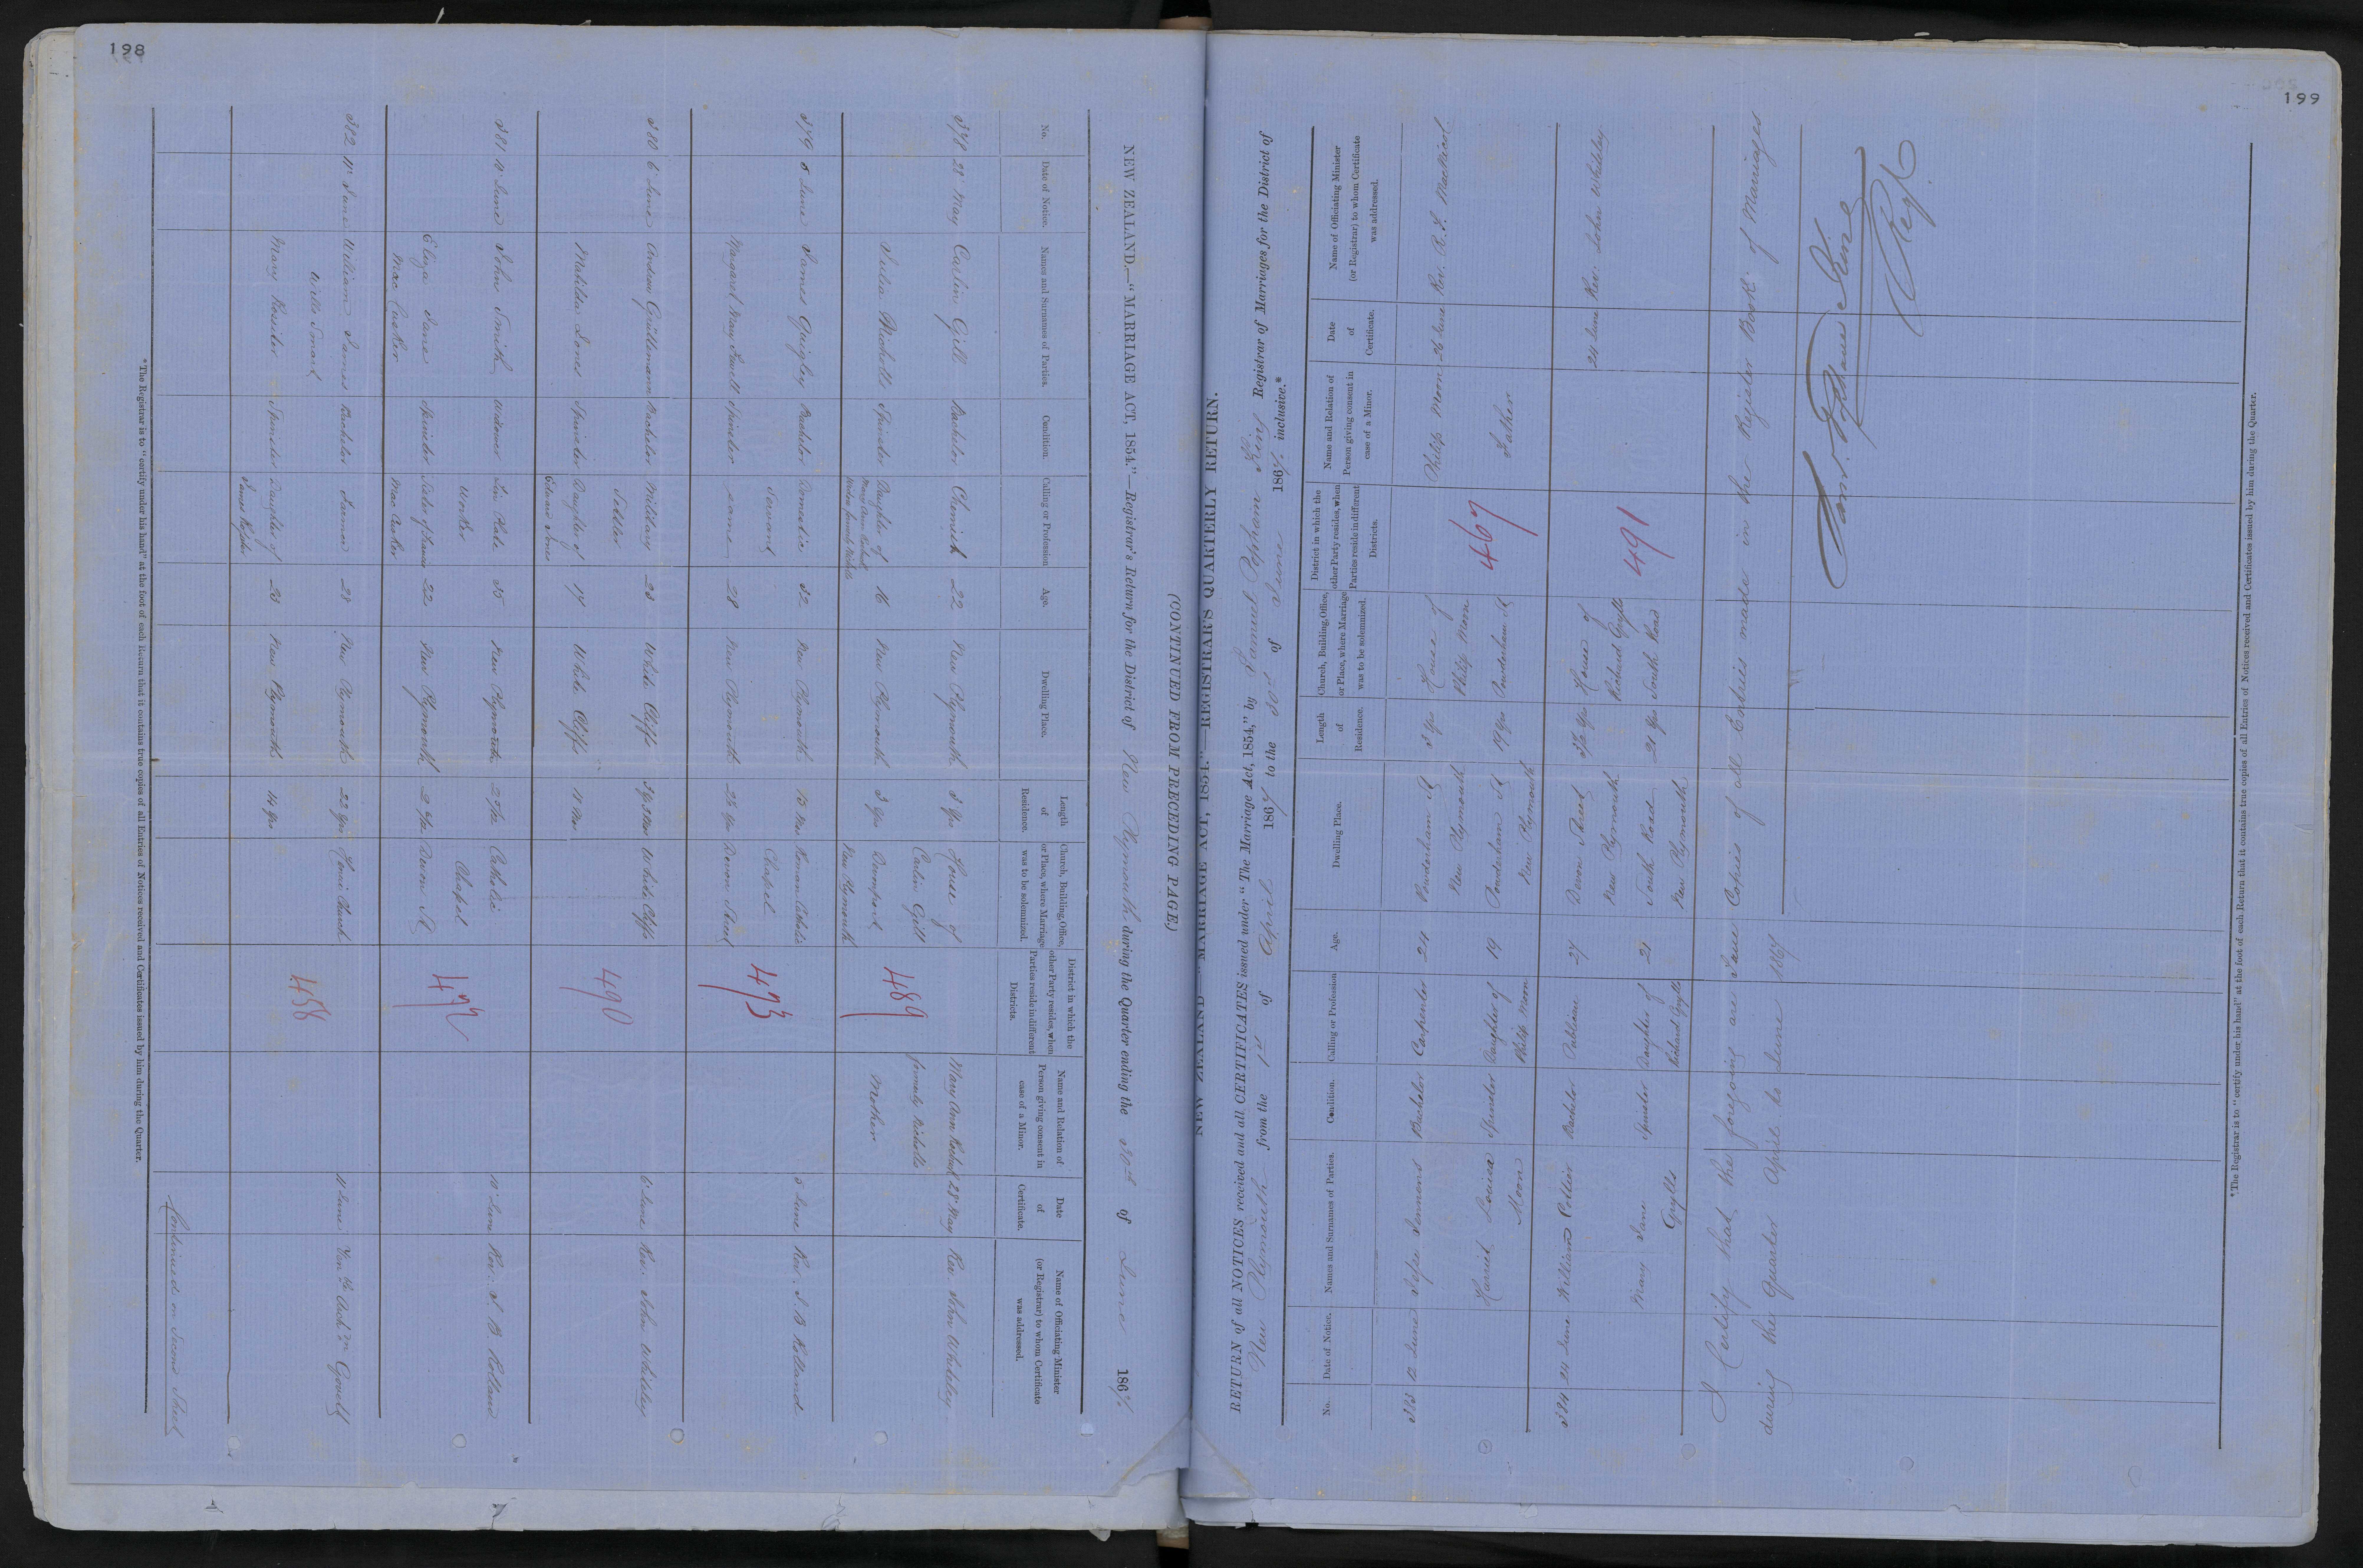 198
NEW ZEALAND.—"MARRIAGE ACT, 1854."—Registrar's Return for the District of New Plymouth, during the Quarter ending the 30th of June 1867.
No.
Date of Notice.
Names and Surnames of Parties.
Condition.
Calling or Profession
Age.
Dwelling Place.
Length of Residence.
Church, Building, Office, or Place, where Marriage was to be solemnized.
District in which the other Party resides, when Parties reside in different Districts.
Name and Relation of Person giving consent in case of a Minor.
Date of Certificate.
Name of Officiating Minister (or Registrar) to whom Certificate was addressed.
378 28 May Carlin Gill Bachelor Chemist 22 New Plymouth 3 Yrs House of Mary Ann 28 May Rev John Whiteley
Carlin Gill formerly Nicholls
Julia Nicholls Spinster Daughter of 16 New Plymouth 3 Yrs Mother
New Plymouth
489
379 5 June James Quigley Bachelor Domestic 32 New Plymouth 15 Mos Roman Catholic 5 June Rev. J. B. Rolland
Servant Chapel
Margaret May Spinster same 28 New Plymouth 2½ Yrs Devon Street
473
380 6 June Andrew Bachelor Military 23 White Cliffs White Cliffs 6 June Rev. John Whiteley
Settler
Matilda Jones Spinster Daughter of 17 White Cliffs 18 Mos
Edward Jones
490
381 10 June John Smith Widower Tin Plate 35 New Plymouth Catholic 10 June Rev. J. B. Rolland
Worker Chapel
Eliza Jane Spinster Sister of 22 New Plymouth Devon St
Mac Cusker Mac Cusker
472
382 11 June William James Bachelor Farmer 28 New Plymouth 22 Yrs Church 11 June Ven. Govett
Wills Smart
Mary Rossiter Spinster Daughter of 23 New Plymouth 14 Yrs
James Rossiter
458
Continued on Second Sheet
*The Registrar is to "certify under his hand" at the foot of each Return that it contains true copies of all Entries of Notices received and Certificates issued by him during the Quarter.
(CONTINUED FROM PRECEDING PAGE.)
199
NEW ZEALAND—"MARRIAGE ACT, 1854."—REGISTRAR'S QUARTERLY RETURN.
RETURN of all NOTICES received and all CERTIFICATES issued under "The Marriage Act, 1854," by Samuel Popham King Registrar of Marriages for the District of
New Plymouth from the 1st of April 1867 to the 30th of June 1867. inclusive.*
No.
Date of Notice.
Names and Surnames of Parties.
Condition.
Calling or Profession
Age.
Dwelling Place.
Length of Residence.
Church, Building, Office, or Place, where Marriage was to be solemnized.
District in which the other Party resides, when Parties reside in different Districts.
Name and Relation of Person giving consent in case of a Minor.
Date of Certificate.
Name of Officiating Minister (or Registrar) to whom Certificate was addressed.
383 12 June Jesse Sammons Bachelor Carpenter 24 Powderham St 3 Yrs House of Philip Moon 26 June Rev. R. F. MacNicol
New Plymouth Philip Moon
Harriet Louisa Spinster Daughter of 19 Powderham St 19 Yrs Powderham St Father
Moon Philip Moon New Plymouth
467
384 24 June William Collier Bachelor Publican 27 Devon Street 3½ Yrs House of 24 June Rev. John Whiteley
New Plymouth Richard Grylls
Mary Jane Spinster Daughter of 21 South Road 21 Yrs South Road
Grylls Richard Grylls New Plymouth
491
I Certify that the foregoing are true Copies of all Entries made in the Register Book of Marriages
during the Quarter April to June 1867
Saml. Popham King
Regr
*The Registrar is to "certify under his hand" at the foot of each Return that it contains true copies of all Entries of Notices received and Certificates issued by him during the Quarter.